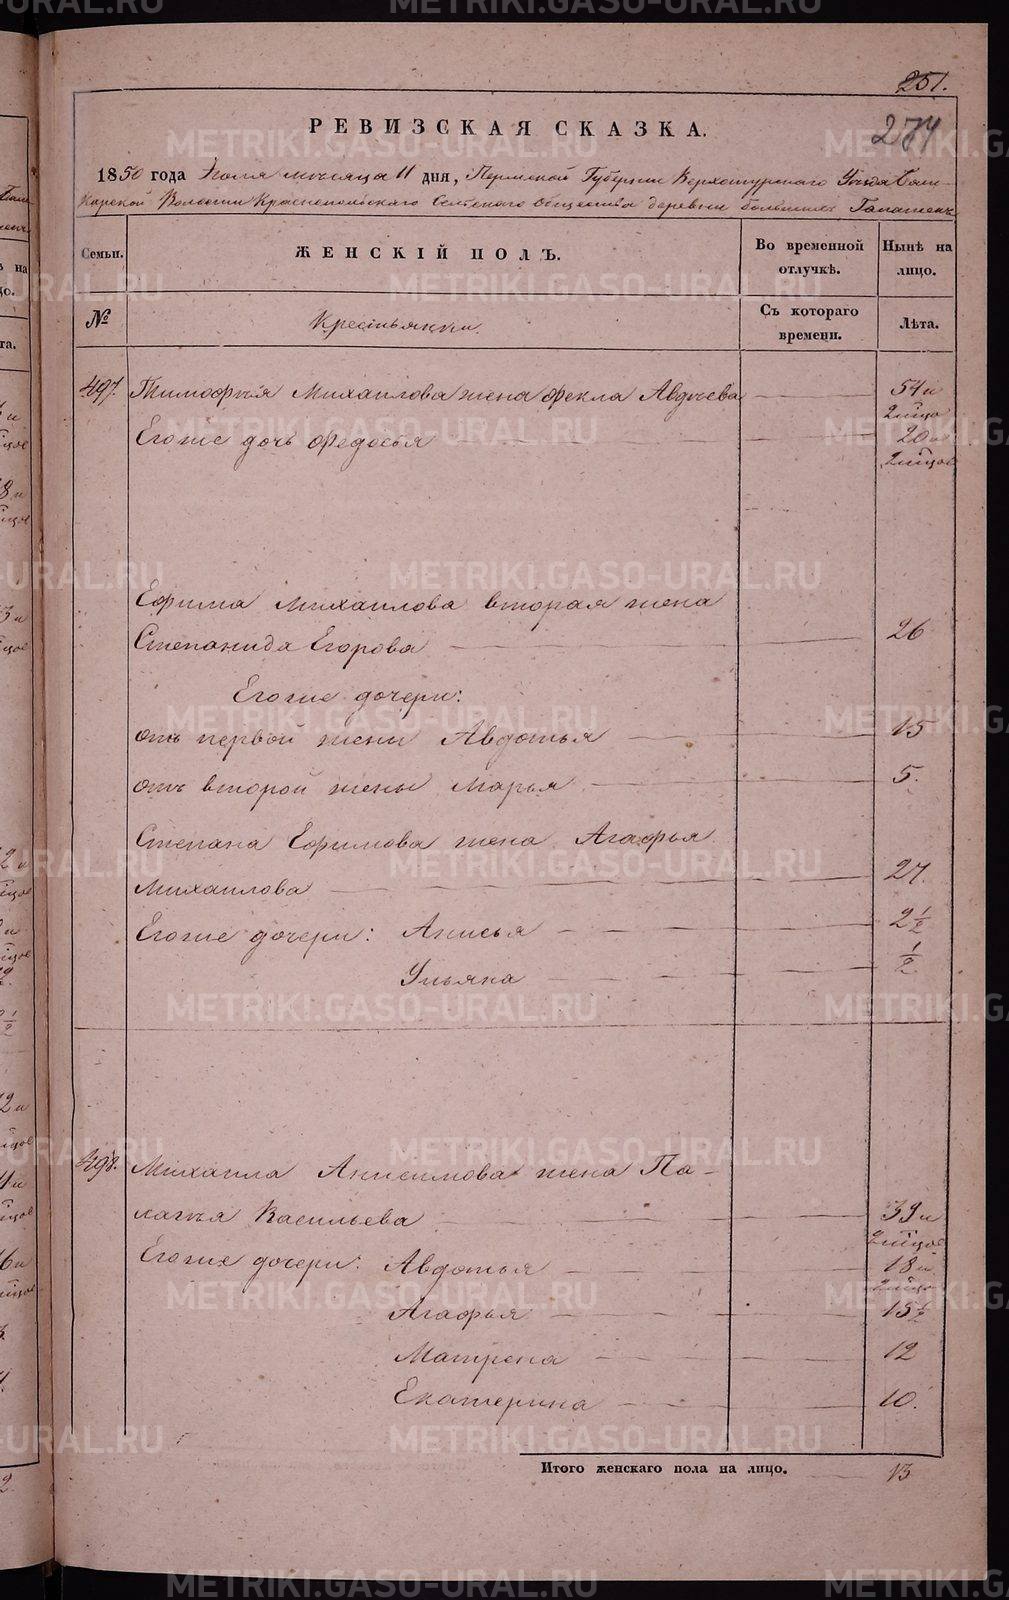 251.
274
РЕВИЗСКАЯ СКАЗКА.
1850 года Іюля месяца 11 дня, Пермской Губернии Верхотурскаго Уезда Баш-
карской Волости Краснопольскаго Сельскаго Общества деревни большихъ
Семьи.
ЖЕНСКІЙ ПОЛЪ.
Во временной отлучкѣ.
Нынѣ на лицо.
№
Крестьянки.
Съ котораго времени.
Лѣта.
497. Тимофѣя Михаилова жена Фекла Авдѣева — 54 и
Егоже дочь Федосья — 20 и
Ефима Михаилова вторая жена
Степанида Егорова — 26
Егоже дочери:
отъ первой жены Авдотья — 15
отъ второй жены Марья — 5.
Степана Ефимова жена Агафья
Михаилова — 27.
Егоже дочери: Анисья — 2 1/2
Ульяна — 1/2
498. Михаила Анисимова жена Па-
лагѣя Васильева — 39 и
Егоже дочери: Авдотья — 18 и
Агафья — 15 1/2
Матрена — 12
Екатерина — 10.
Итого женскаго пола на лицо. 13
METRIKI.GASO-URAL.RU